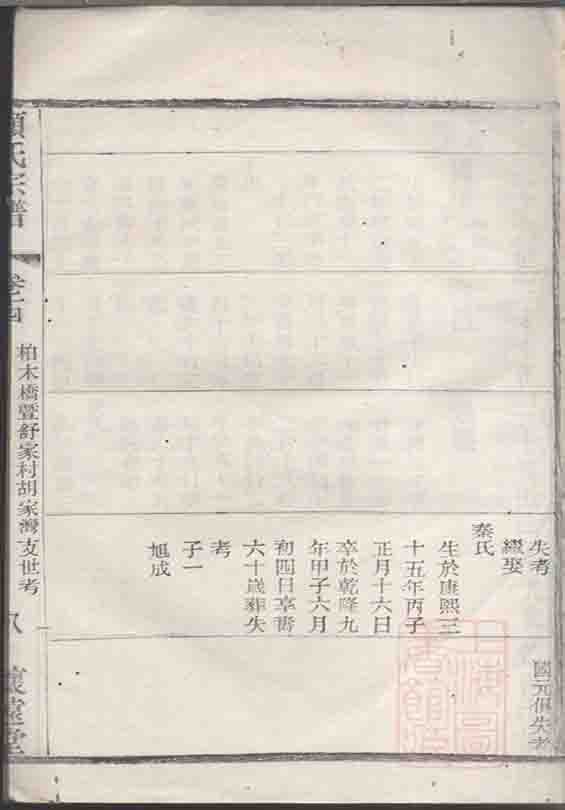 失考
繼娶
秦氏
生於康熙三
十五年丙子
正月十六日
卒於乾隆九
年甲子六月
初四日享壽
六十歲葬失
考
子一
旭成
國元俱失考
氏宗譜
柏木橋暨舒家村胡家灣支世考
八
上海圖書館藏